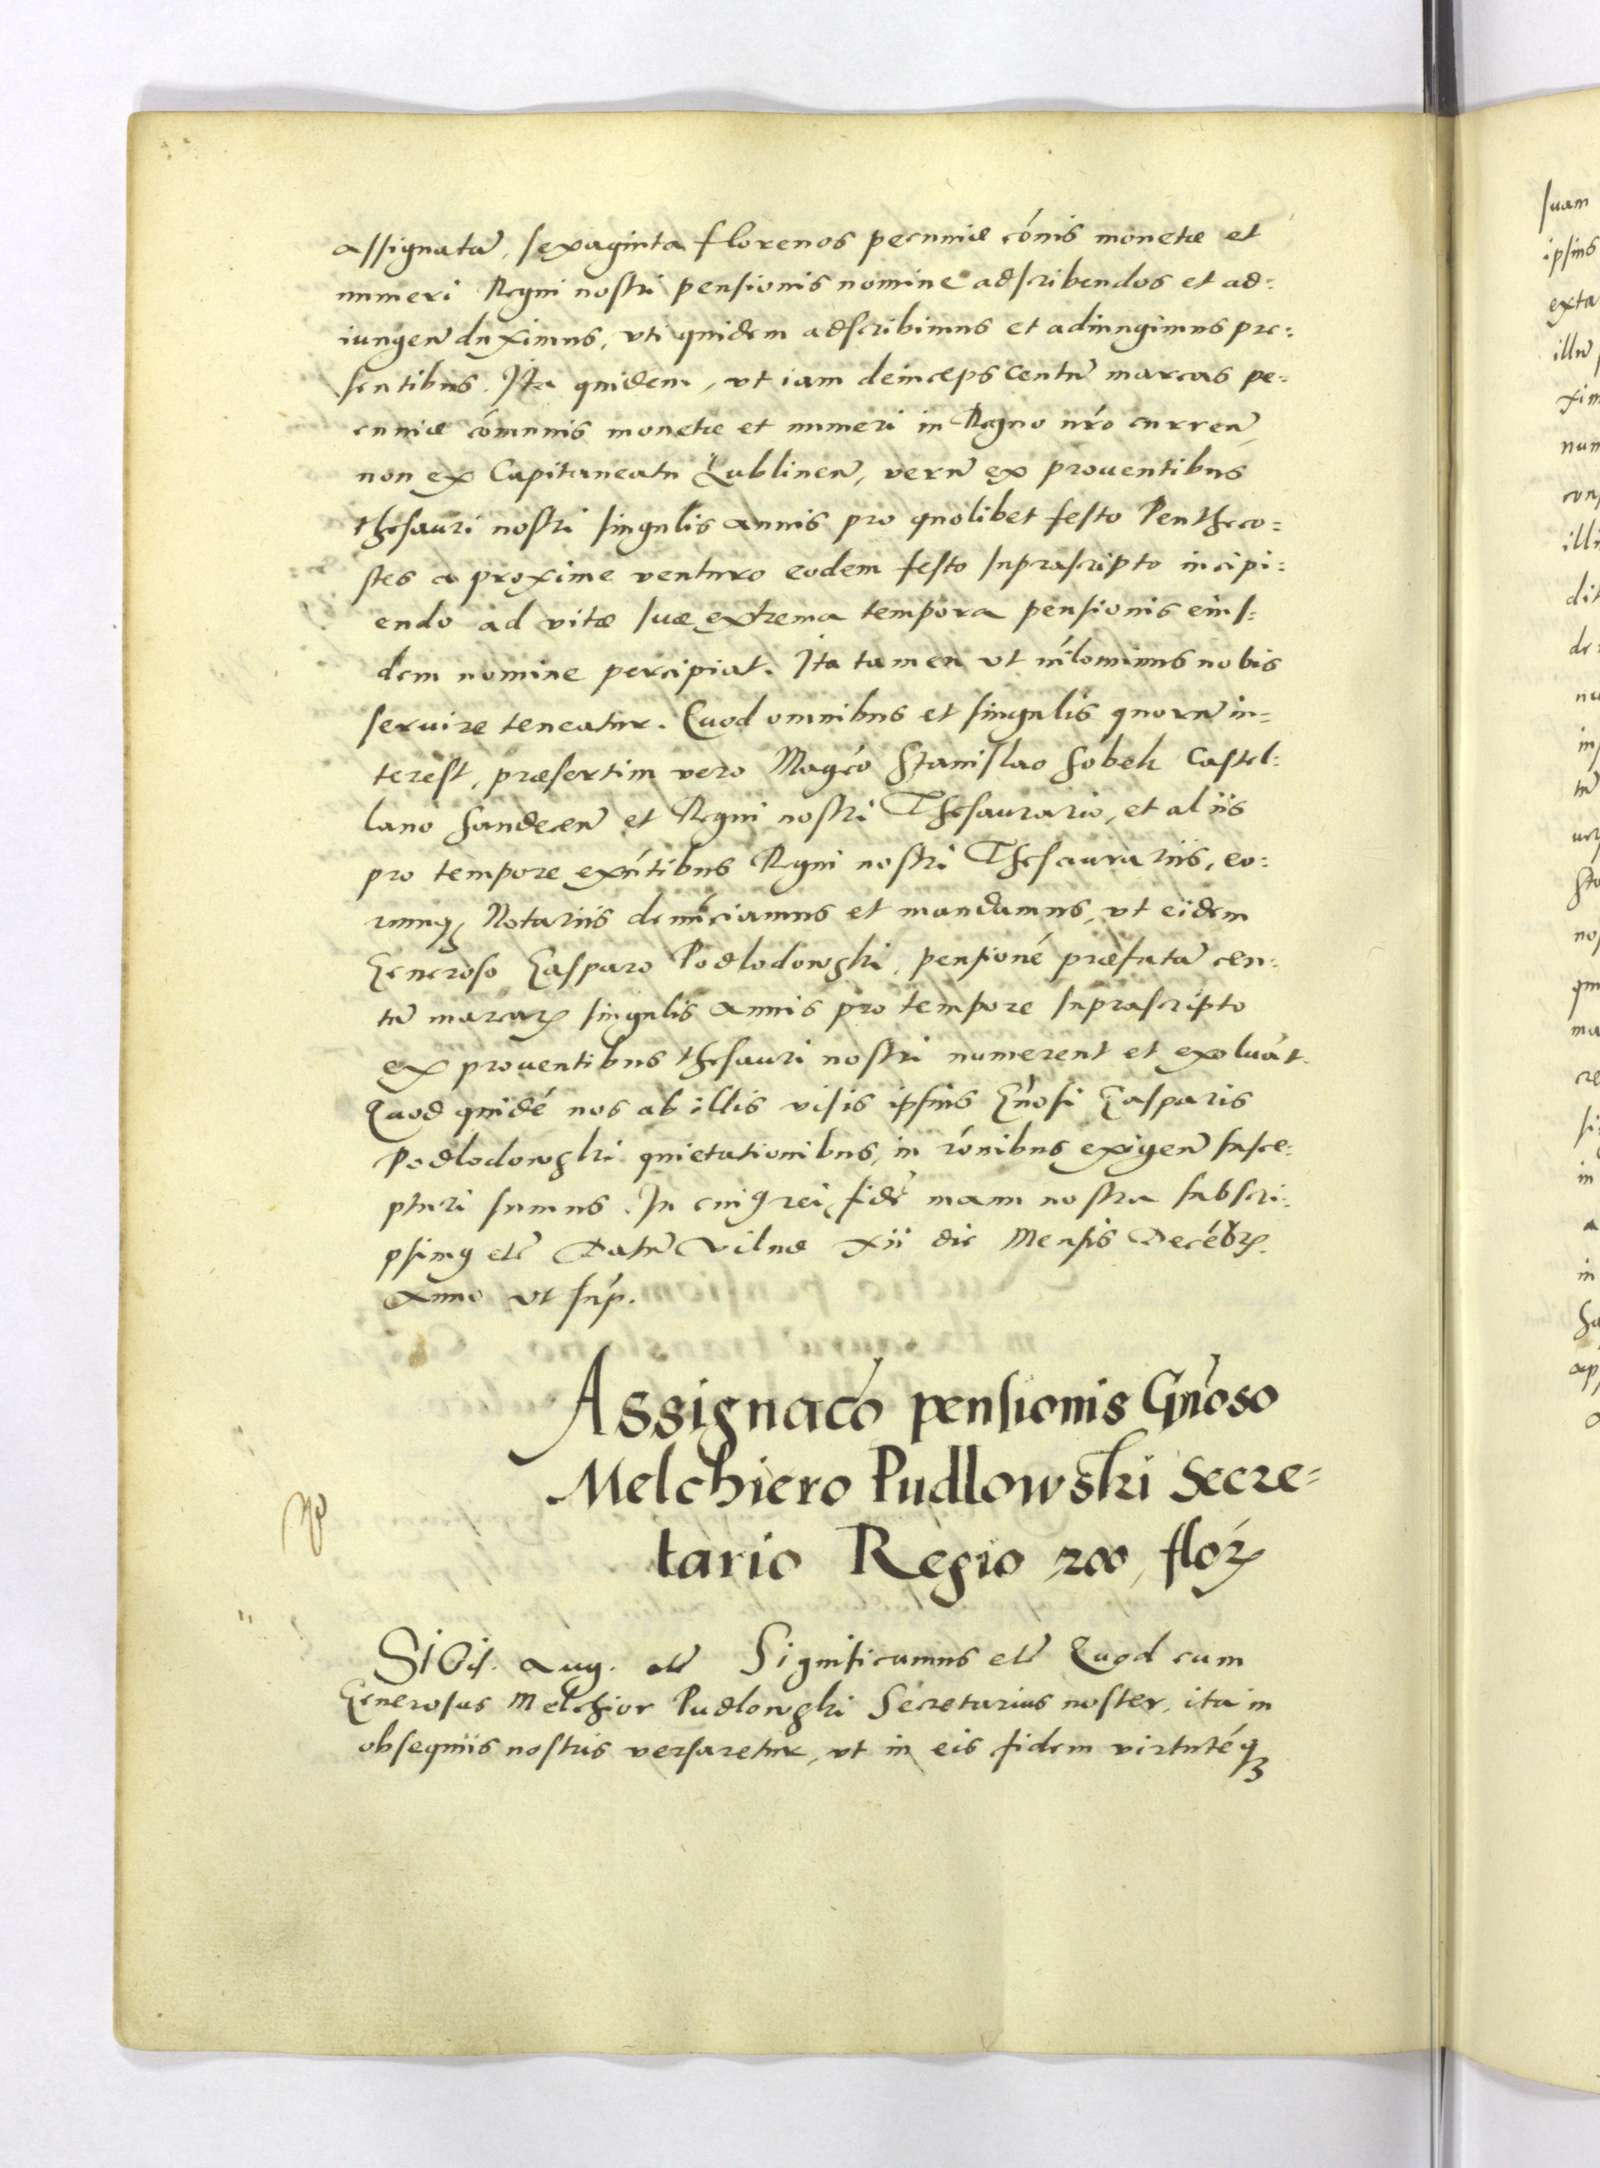 assignatã, sexaginta florenos pecuniæ cónis monetæ et
numeri Regni nostri pensionis nomine adscribendos et ad=
iungen̄ duximus, vti quidem adscribimus et adiungimus pre=
sentibus. Ita quidem, vt iam deinceps centũ marcas pe=
cuniæ cómunis monetæ et numeri in Regno nr̃o curren̄,
non ex Capitaneatu Lublinen̄, verũ ex prouentibus
thesauri nostri singulis annis pro quolibet festo Pentheco=
stes a proxime venturo eodem festo suprascripto incipi=
endo ad vitæ suæ extrema tempora pensionis eius=
dem nomine percipiat. Ita tamen vt nílominus nobis
seruire teneatur. Quod omnibus et singulis quorũ in=
terest, præsertim vero Magćo Stanislao Sobek Castel=
lano Sandecen̄ et Regni nostri Thesaurario, et aliis
pro tempore exńtibus Regni nostri Thesaurariis, eo=
rumq₃ Notariis denũciamus et mandamus, vt eidem
Generoso Gasparo Podlodowski, pensioné præfatã cen=
tũ marcarꝝ singulis annis pro tempore suprascripto
ex prouentibus thesauri nostri numerent et exoluãt.
Quod quidé nos ab illis visis ipsius Gñosi Gasparis
Podlodowski quietationibus, in rónibus exigen̄ susce=
pturi sumus. In cuiꝰ rei fidẽ manu nostra subscri=
psimꝰ etc̃ Datũ Vilnæ xii die Mensis Decébrꝝ.
Anno vt suṕ.
Assignacó pensionis Gñoso
Melchiero Pudlowski Secre=
tario Regio 200, flórꝝ
Sigis. Aug. etc̃ Significamus etc̃ Quod cum
Generosus Melchior Pudlowski Secretarius noster, ita in
obsequiis nostris versaretur, vt in eis fidem virtutéq₃